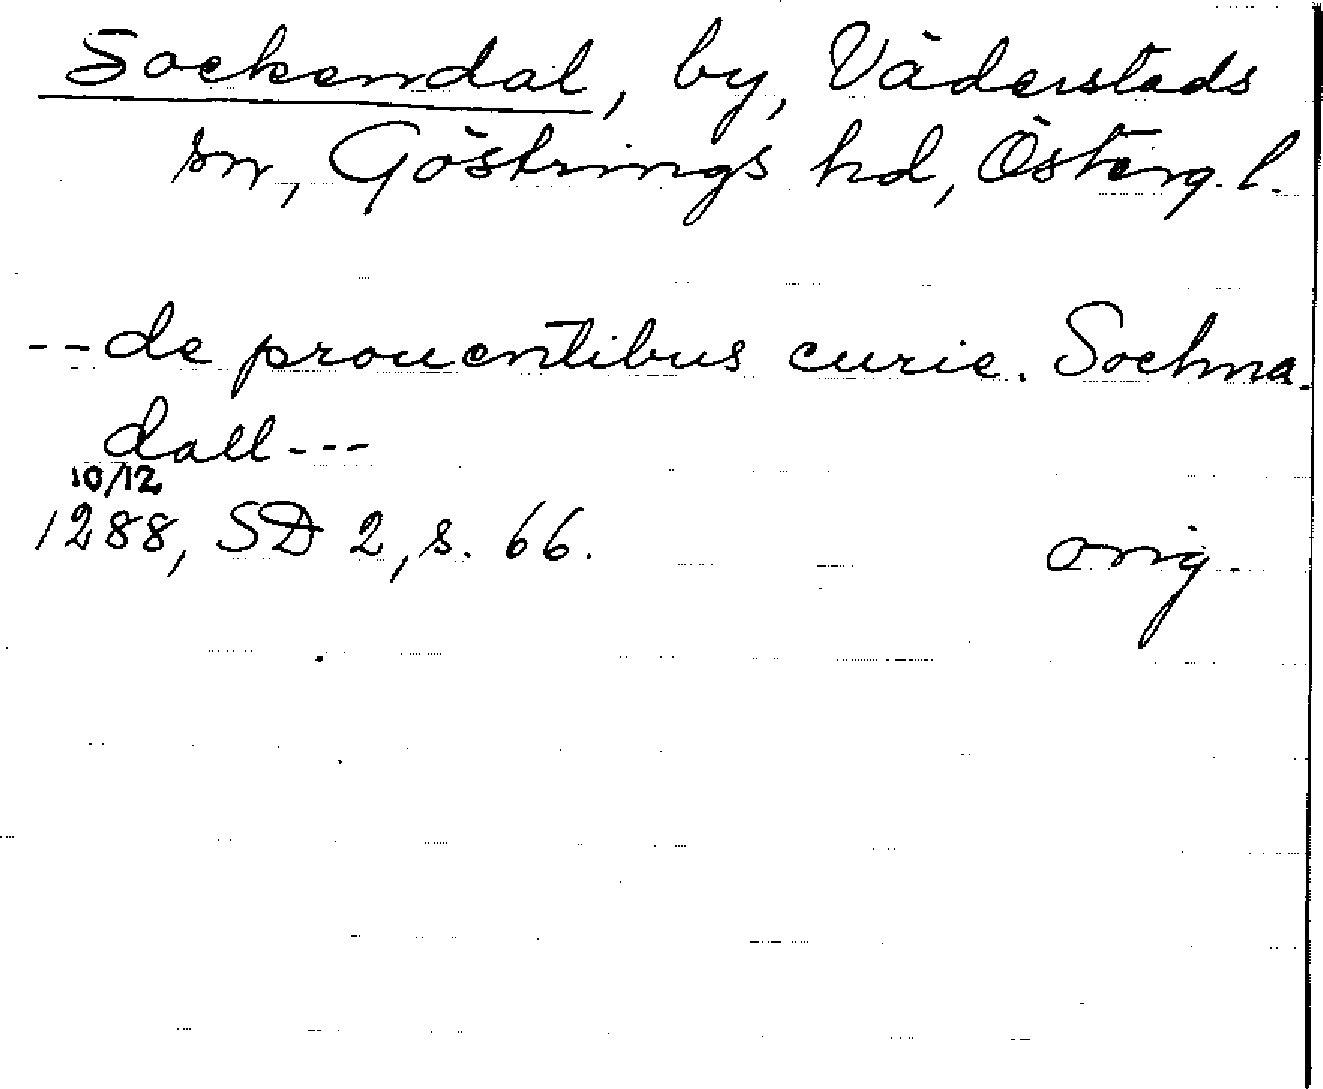 Sockendal, by, Väderstads
sn, Göstrings hd, Österg. l.
-- de prouentibus curie. Sochna
dall ---
10/12
1288, SD 2, s. 66.
orig.